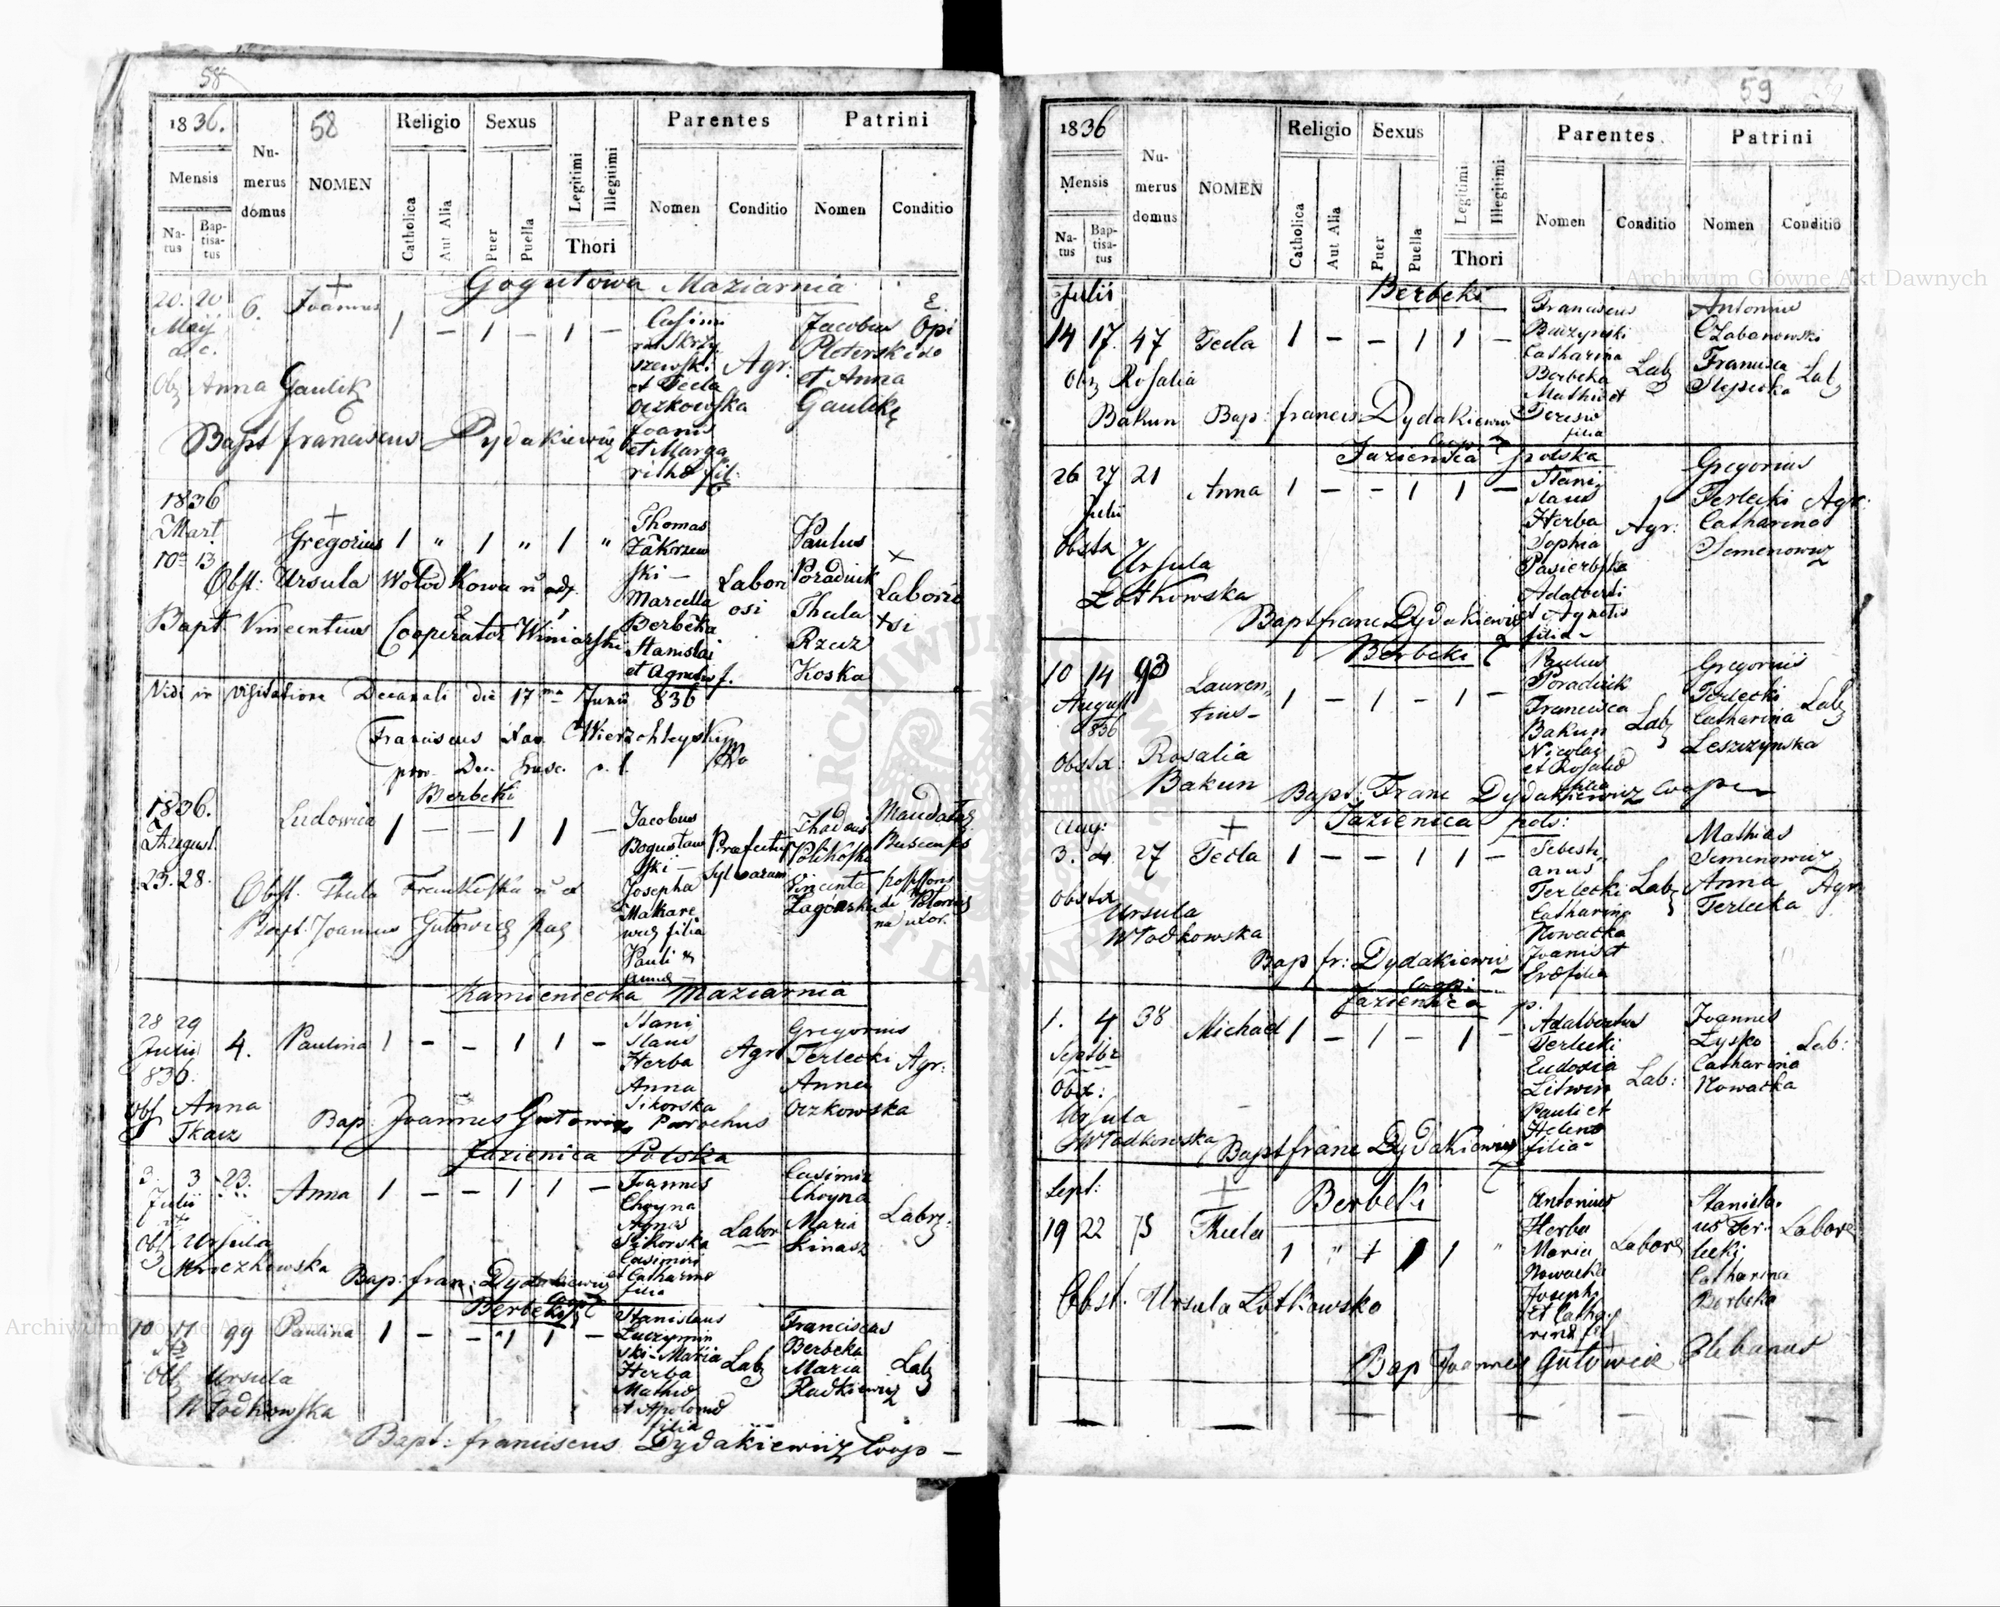 58
1836.
58
Religio
Sexus
Parentes
Patrini
Mensis
Nu-
merus
domus
NOMEN
Catholica
Aut Alia
Puer
Puella
Legitimi
Illegitimi
Thori
Nomen
Conditio
Nomen
Conditio
Na-
tus
Bap-
tisa-
tus
Gogutowa Maziarnia
20. 20
Maij
a.c.
6.
Joannes
1 – 1 – 1 –
Casimi
rus Skrzy
szewski
et Tecla
Oczkowska
Joannis
et Marga
ritha fil:
Agr:
Jacobus
Ploterski
et Anna
Gaulik
Obs Anna Gaulik
Bapt franciscus Dydakiewicz
1836
Mart
10 13
Gregorius
1 " 1 " 1 "
Thomas
Zakrzew
ski –
Marcella
Berbecka
Stanislai
et Agnetis f.
Labori
osi
Paulus
Poradnik
Thecla
Rzecz
Koska
Laborio
si
Obst: Ursula
Bapt Vincentius Cooperator Winiarski
Vidi in visitatione Decanali die 17ma Junii 836
Franciscus Xav. Wierzchleyski
Berbeki
1836.
August.
23. 28.
Ludovica
1 – – 1 1 –
Jacobus
Bogusław
ski –
Josepha
Makare
wicz filia
Pauli &
Annae –
Praefectus
Sylvarum
Thadeus
Vincenta
Zagorska
Mandatar
Obst. Thecla
Bapt. Joannes Gutowicz
Kamieniecka Maziarnia
28 29
Julii
836.
4.
Paulina
1 – – 1 1 –
Stani
slaus
Herba
Anna
Sikorska
Agr
Gregorius
Terlecki
Anna
Oczkowska
Agr:
Obs Anna
Tkacz
Bap: Joannes Gutowicz Parochus
Jazienica Polska
3. 3
Julii
23.
Anna
1 – – 1 1 –
Joannes
Choyna
Agnes
Sikorska
Casimiri
et Catharina
filia
Labor
Casimir
Choyna
Maria
Kinasz
Labor:
Obs Ursula
Bap: fran: Dydakiewicz
Coop
Berbeki
10 17
99
Paulina
1 – – 1 1 –
Stanislaus
Luczymin
ski – Maria
Herba
Mathia
et Apolonia
filia
Lab
Franciscus
Berbeka
Maria
Radkiewicz
Lab
Obs Ursula
Włodkowska
Bapt: franciscus Dydakiewicz Coop –
59
1836
Religio
Sexus
Parentes
Patrini
Mensis
Nu-
merus
domus
NOMEN
Catholica
Aut Alia
Puer
Puella
Legitimi
Illegitimi
Thori
Nomen
Conditio
Nomen
Conditio
Na-
tus
Bap-
tisa-
tus
Archiwum Główne Akt Dawnych
Julii
Berbeki
14 17. 47
Tecla
1 – – 1 1 –
Franciscus
Buczynski
Catharina
Berbeka
Mathia et
Teresia
filia
Lab
Antonius
Czabanowski
Francisca
Slepecka
Lab
Obs Rosalia
Bakun
Bap: francis: Dydakiewicz
Coop
Jazienica polska
26 27 21
Julii
Anna
1 – – 1 1 –
Stani
slaus
Herba
Sophia
Pasierbska
Adalberti
et Agnetis
filia –
Agr:
Gregorius
Terlecki
Catharina
Semenowicz
Agr:
Obsta
Ursula
Lotkowska
Bapt franc Dydakiewicz
Berbeki
10 14 93
August
1836
Lauren
tius –
1 – 1 – 1 –
Paulus
Poradnik
Francisca
Bakun
Nicolai
et Rosalia
filia
Lab
Gregorius
Terlecki
Catharina
Leszczynska
Lab
Obsta Rosalia
Bakun
Bapt: Franc Dydakiewicz Cooper
Jazienica pols:
Aug:
3. 4. 27
Tecla
1 – – 1 1 –
Sebesti
anus
Terlecki
Catharina
Nowacka
Joannis et
Eva filia
Lab
Mathias
Semenowicz
Anna
Terlecka
Agr
Obsta
Ursula
Włodkowska
Bap fr: Dydakiewicz
Coop:
Jazienica p.
1. 4 38
Septbr
Michael
1 – 1 – 1 –
Adalbertus
Terlecki
Eudosia
Litwin
Pauli et
Helena
filia –
Lab:
Joannes
Lysko
Catharina
Nowacka
Lab:
Obst:
Ursula
Włodkowska
Bapt franc Dydakiewicz
Sept:
Berbeki
19 22 75
Thecla
1 " + 1 1 "
Antonius
Herba
Maria
Nowacka
Josephi
et Catha
rina fil
Labor
Stanisla
us Ter
lecki
Catharina
Berbeka
Labor
Obst. Ursula Lotkowska
Bap Joannes Gutowicz Plebanus
Archiwum Główne Akt Dawnych
ARCHIWUM GŁÓWNE AKT DAWNYCH